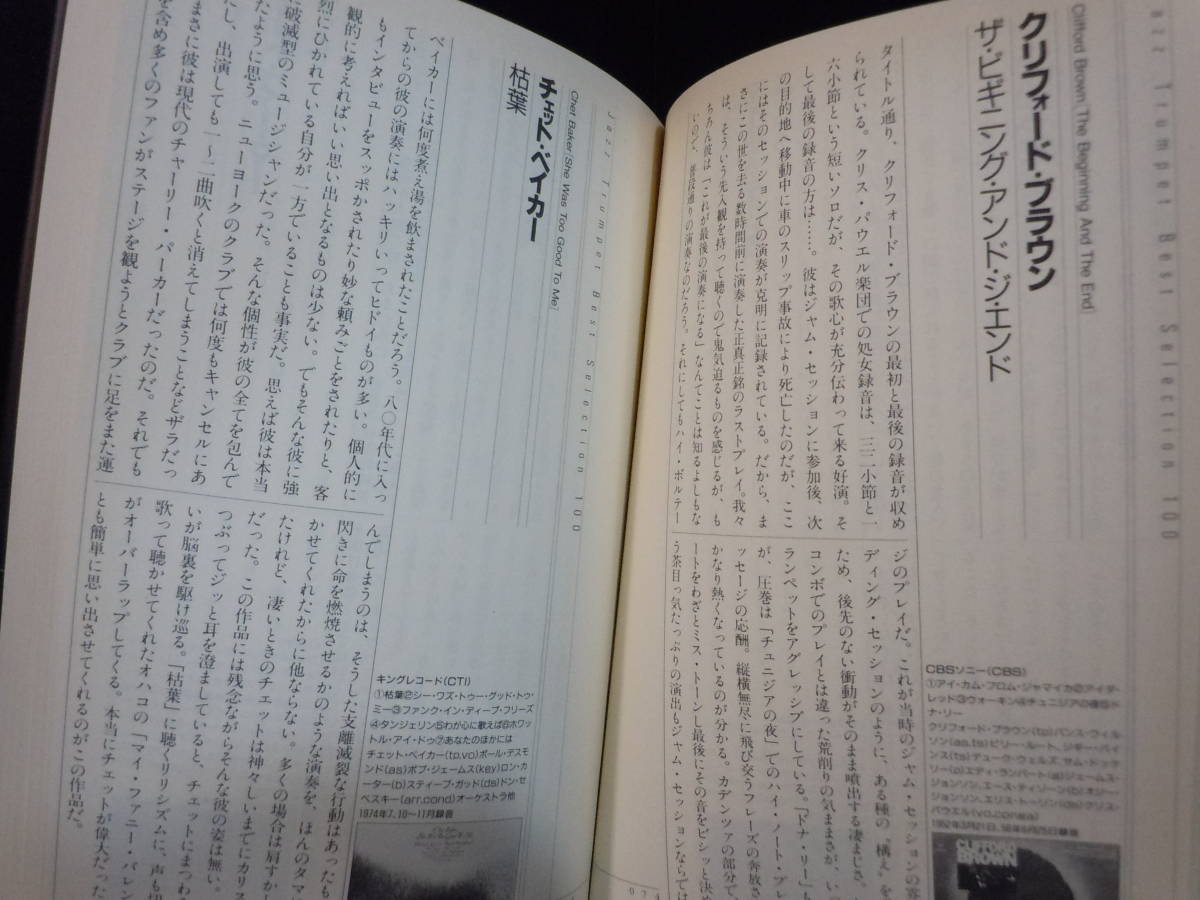 azz Trumpet Best Selection 100
クリフォード・ブラウン
Clifford Brown[The Beginning And The End]
ザ・ビギニング・アンド・ジ・エンド
タイトル通り、クリフォード・ブラウンの最初と最後の録音が収め
られている。クリス・パウエル楽団での処女録音は、三二小節と一
六小節という短いソロだが、その歌心が充分伝わって来る好演。そ
して最後の録音の方は……。彼はジャム・セッションに参加後、次
の目的地へ移動中に車のスリップ事故により死亡したのだが、ここ
にはそのセッションでの演奏が克明に記録されている。だから、ま
さにこの世を去る数時間前に演奏した正真正銘のラストプレイ。我々
は、そういう先入観を持って聴くので鬼気迫るものを感じるが、も
ちろん彼は「これが最後の演奏になる」なんてことは知るよしもな
いので、普段通りの演奏なのだろう。それにしてもハイ・ボルテー
ジのプレイだ。これが当時のジャム・セッションの容
ディング・セッションのように、ある種の〝構え〟を
ため、後先のない衝動がそのまま噴出する凄まじさ。
コンボでのプレイとは違った荒削りの気ままさが、い
ランペットをアグレッシブにしている。「ドナ・リー」も
が、圧巻は「チュニジアの夜」でのハイ・ノート・プレ
ッセージの応酬。縦横無尽に飛び交うフレーズの奔放さ
かなり熱くなっているのが分かる。カデンツァの部分で
ートをわざとミス・トーンし最後にその音をビシッと決め
う茶目っ気たっぷりの演出もジャム・セッションならでは
CBSソニー(CBS)
①アイ・カム・フロム・ジャマイカ②アイダ・
レッド③ウォーキン④チュニジアの夜⑤ド
ナ・リー
クリフォード・ブラウン(tp)バンス・ウィル
ソン(as,ts)ビリー・ルート、ジギー・バイ
ンス(ts)デューク・ウェルズ、サム・ドック
リー(p)エディ・ランバート(g)ジェームス・
ジョンソン、エース・ティソーン(b)オジー・
ジョンソン、エリス・トーリン(ds)クリス・
パウエル(vo,conga)
1952年3月21日、56年6月25日録音
CLIFFORD
BROWN
Jazz Trumpet Best Selection 100
チェット・ベイカー
Chet Baker[She Was Too Good To Me]
枯葉
ベイカーには何度煮え湯を飲まされたことだろう。八〇年代に入っ
てからの彼の演奏にはハッキリいってヒドイものが多い。個人的に
もインタビューをスッポかされたり妙な頼みごとをされたりと、客
観的に考えればいい思い出となるものは少ない。でもそんな彼に強
烈にひかれている自分が一方でいることも事実だ。思えば彼は本当
に破滅型のミュージシャンだった。そんな個性が彼の全てを包んで
たように思う。ニューヨークのクラブでは何度もキャンセルにあ
たし、出演しても一〜二曲吹くと消えてしまうことなどザラだっ
まさに彼は現代のチャーリー・パーカーだったのだ。それでも
を含め多くのファンがステージを観ようとクラブに足をまた運
んでしまうのは、そうした支離滅裂な行動はあったも
閃きに命を燃焼させるかのような演奏を、ほんのタマ
かせてくれたからに他ならない。多くの場合は肩すかし
たけれど、凄いときのチェットは神々しいまでにカリス
だった。この作品には残念ながらそんな彼の姿は無い。
つぶってジッと耳を澄ましていると、チェットにまつわ
いが脳裏を駆け巡る。「枯葉」に聴くリリシズムに、声も切
歌って聴かせてくれたオハコの「マイ・ファニー・バレン
がオーバーラップしてくる。本当にチェットが偉大だった
とも簡単に思い出させてくれるのがこの作品だ。
キングレコード(CTI)
①枯葉②シー・ワズ・トゥー・グッド・トゥ・
ミー③ファンク・イン・ディープ・フリーズ
④タンジェリン⑤わが心に歌えば⑥ホワッ
トル・アイ・ドゥ⑦あなたのほかには
チェット・ベイカー(tp,vo)ポール・デスモ
ンド(as)ボブ・ジェームス(key)ロン・カ
ーター(b)スティーブ・ガッド(ds)ドン・セ
ベスキー(arr,cond)オーケストラ他
1974年7、10〜11月録音